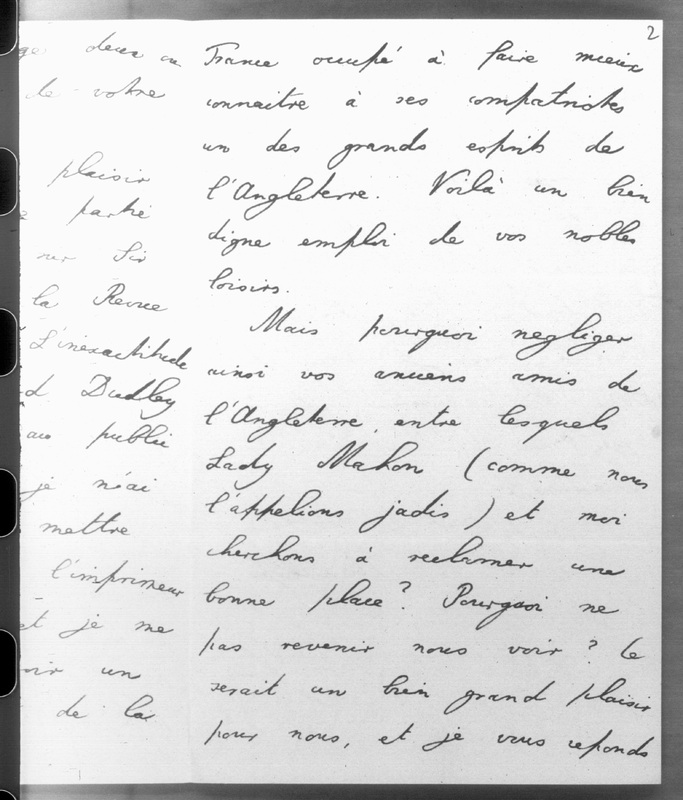 2
deux ou
de votre
plaisir
partie
sur Sir
la Revue
L'inexactitude
Dudley
au public
je n'ai
mettre
l'imprimeur
et je me
un
de la
France occupé à faire mieux
connaitre à ses compatriotes
un des grands esprits de
l'Angleterre. Voilà un bien
digne emploi de vos nobles
loisirs.
Mais pourquoi negliger
ainsi vos anciens amis de
l'Angleterre, entre lesquels
Lady Mahon (comme nous
l'appelions jadis) et moi
cherchons à reclamer une
bonne place? Pourquoi ne
pas revenir nous voir? Ce
serait un bien grand plaisir
pour nous, et je vous reponds